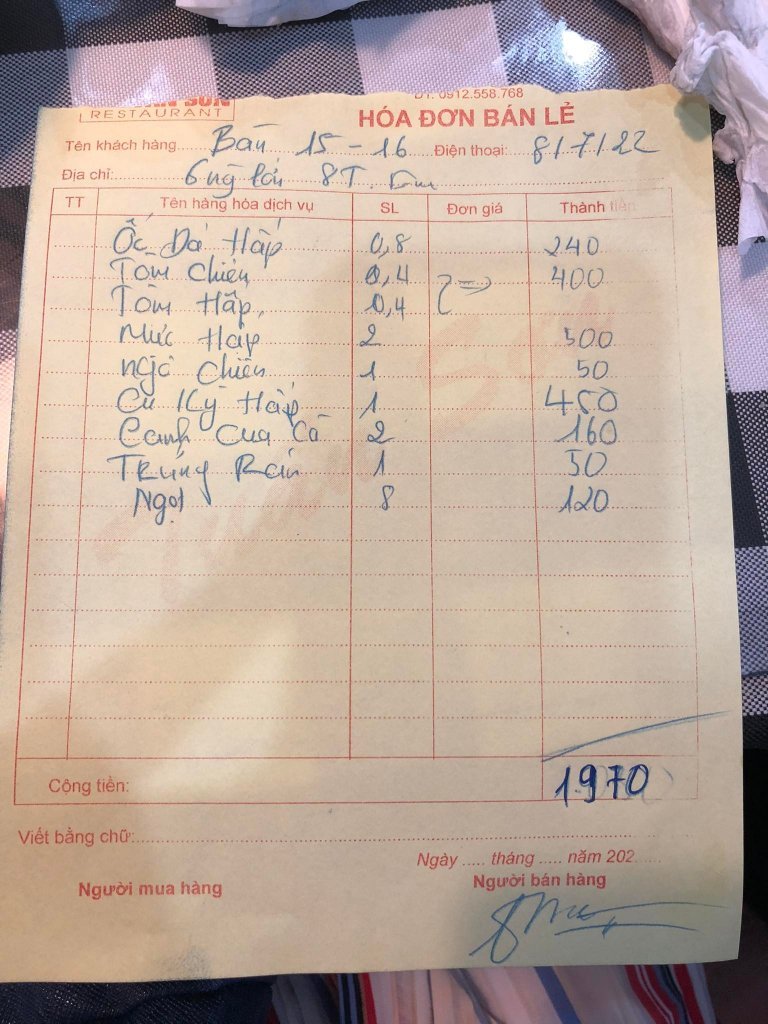 SƠN
RESTAURANT
ĐT: 0912.558.768
HÓA ĐƠN BÁN LẺ
Tên khách hàng: Bàn 15 - 16 Điện thoại: 8/7/22
Địa chỉ: 6 ng lớn 8T.
TT Tên hàng hóa dịch vụ SL Đơn giá Thành tiền
Ốc Đá Hấp 0,8 240
Tôm chiên 0,4 400
Tôm Hấp 0,4
Mực Hấp 2 500
ngô chiên 1 50
Cù Kỳ Hấp 1 450
Canh Cua Cà 2 160
Trứng Rán 1 50
Ngọt 8 120
Cộng tiền: 1970
Viết bằng chữ:
Ngày ..... tháng ..... năm 202
Người mua hàng Người bán hàng